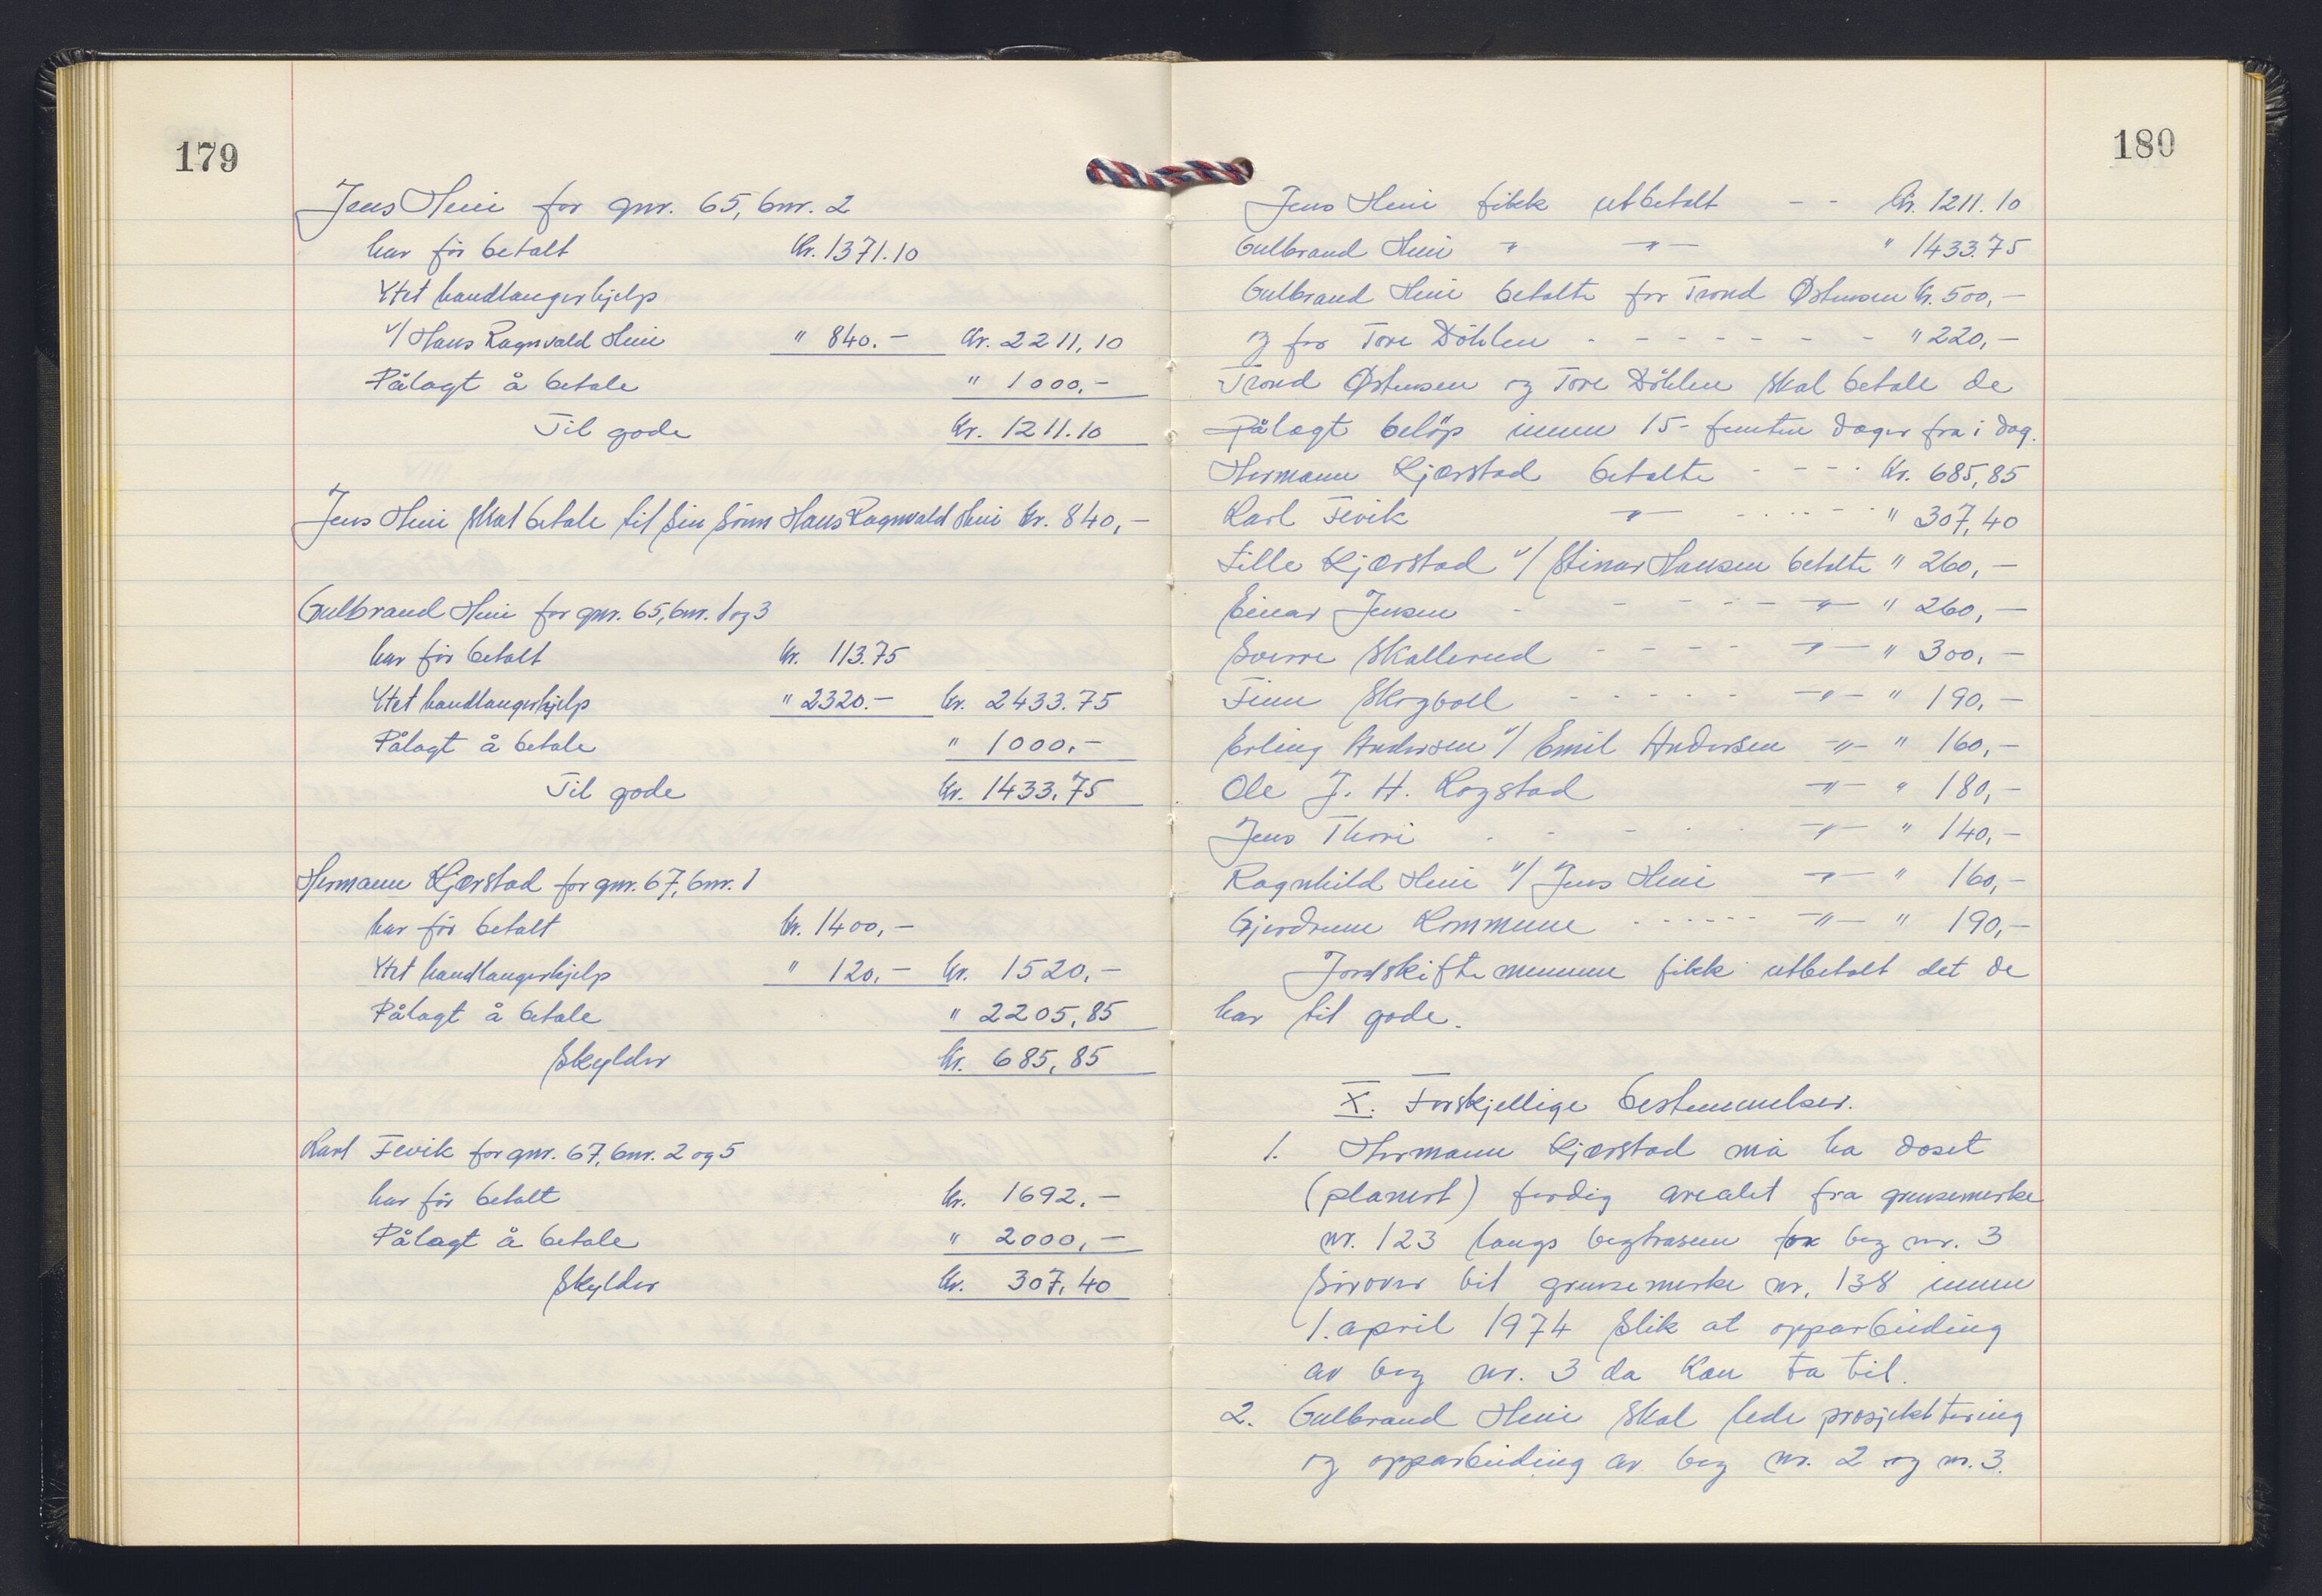 179
Jens Heni for gnr. 65, bnr. 2
har för betalt Kr. 1371.10
Ytet handlangerhjelp
v/ Hans Ragnvald Heni " 840.- Kr. 2211,10
Pålagt å betale " 1000,-
Til gode Kr. 1211.10
Jens Heni skal betale til sin sönn Hans Ragnvald Heni Kr. 840,-
Gulbrand Heni for gnr. 65, bnr. 1 og 3
har för betalt Kr. 113.75
Ytet handlangerhjelp " 2320.- Kr. 2433.75
Pålagt å betale " 1000,-
Til gode Kr. 1433.75
Hermann Kjærstad for gnr. 67, bnr. 1
har för betalt Kr. 1400,-
Ytet handlangerhjelp " 120,- Kr. 1520,-
Pålagt å betale " 2205,85
Skylder Kr. 685,85
Karl Fevik for gnr. 67, bnr. 2 og 5
har för betalt Kr. 1692.-
Pålagt å betale " 2000,-
Skylder Kr. 307,40
180
Jens Heni fikk utbetalt - - Kr. 1211.10
Gulbrand Heni " -"- " 1433.75
Gulbrand Heni betalte for Trond Østensen Kr. 500,-
og for Tore Döhlen - - - - - - - " 220,-
Trond Østensen og Tore Döhlen skal betale de
pålagt belöp innen 15- femten dager fra i dag.
Hermann Kjærstad betalte - - - - Kr. 685,85
Karl Fevik -"- - - - - - " 307,40
Lille Kjærstad v/ Steinar Hansen betalte " 260,-
Einar Jensen - - - - - - -"- " 260,-
Sverre Skallerud - - - - -"- " 300,-
Finn Skogvoll - - - - - -"- " 190,-
Erling Andersen v/ Emil Andersen -"- " 160,-
Ole J. H. Rogstad -"- " 180,-
Jens Thori - - - - - -"- " 140,-
Ragnhild Heni v/ Jens Heni -"- " 160,-
Gjerdrum Kommune - - - - - - -"- " 190,-
Jordskiftemennene fikk utbetalt det de
har til gode.
X. Forskjellige bestemmelser.
1. Hermann Kjærstad må ha doset
(planert) ferdig arealet fra grensemerke
nr. 123 langs vegtraseen for veg nr. 3
sörover til grensemerke nr. 138 innen
1. april 1974 slik at opparbeiding
av veg nr. 3 da kan ta til.
2. Gulbrand Heni skal lede prosjekttering
og opparbeiding av veg nr. 2 og nr. 3.